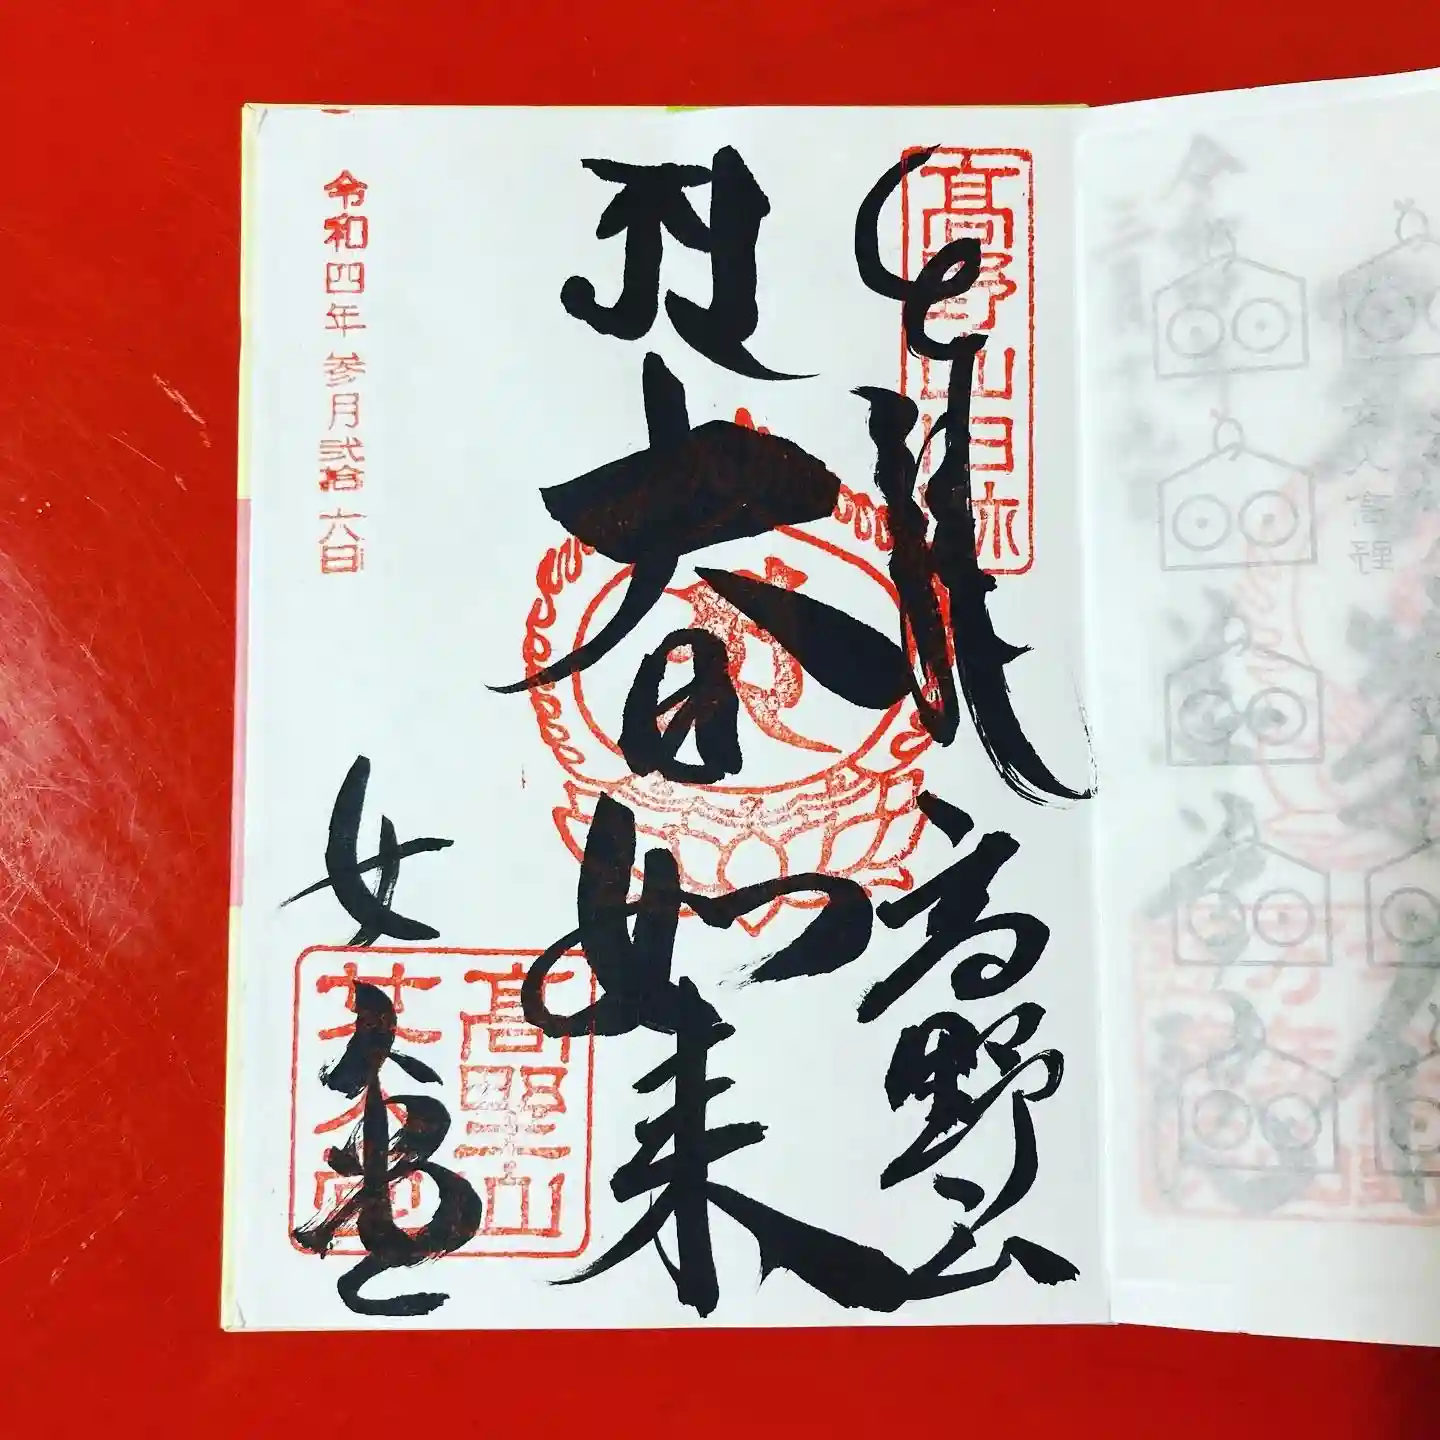 奉拝
高野山
高野山旧跡
大日如来
女人堂
高野山
女人堂
令和四年参月弐拾六日